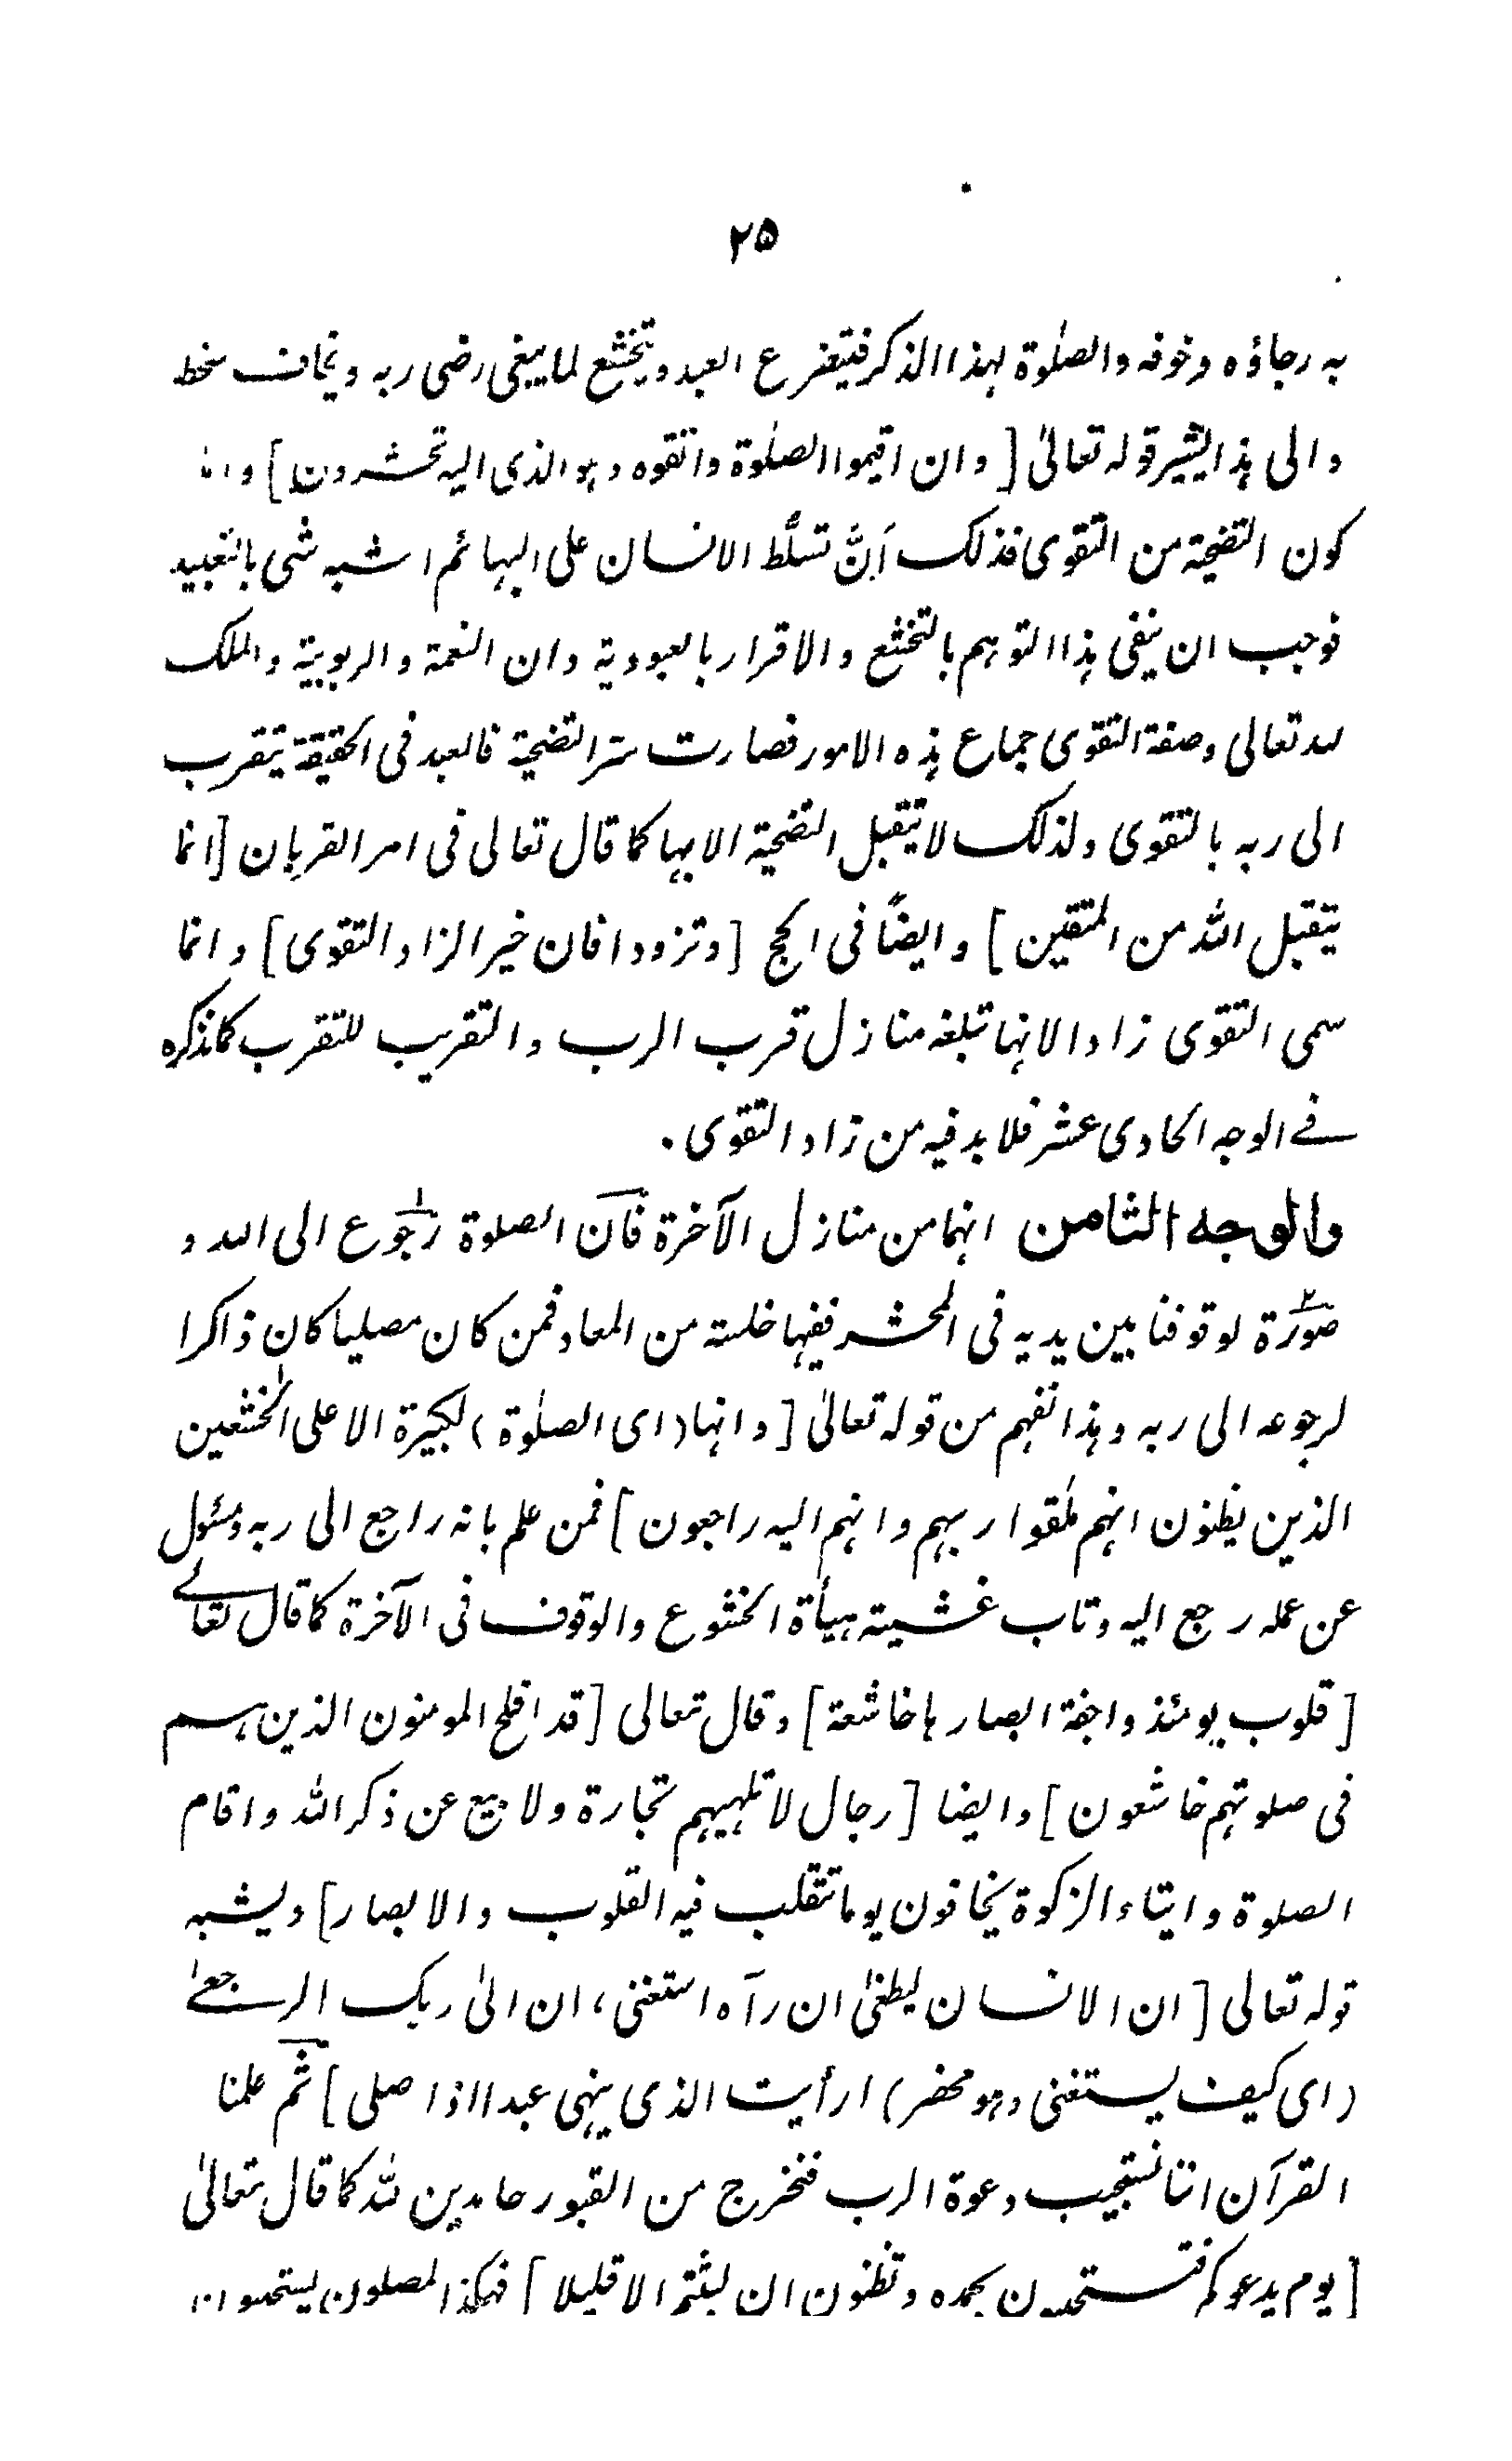 ٢٥
به رجاؤه وخوفه والصلٰوة لهذا الذكر فيتضرع العبد ويتخشع لما يبغى رضى ربه ويخاف سخطه
والى هذا يشير قوله تعالىٰ [ وان اقيموا الصلٰوة واتقوه وهو الذى اليه تحشرون ] واما
كون التضحية من التقوى فذلك اَنَّ تسلُّط الانسان على البهائم اشبه شى بالتعبيد
فوجب ان ينفى هذا التوهم بالتخشع والاقرار بالعبودية وان النعمة والربوبية والملك
لله تعالى وصفة التقوى جماع هذه الامور فصارت سرّ التضحية فالعبد فى الحقيقة يتقرب
الى ربه بالتقوى ولذلك لا يتقبل التضحية الا بها كما قال تعالى فى امر القربان [ انما
يتقبل الله من المتقين ] وايضاً فى الحج [ وتزودا فان خير الزاد التقوى ] وانما
سمى التقوى زادا لانها تبلغه منازل قرب الرب والتقريب للتقرب كما نذكره
فے الوجه الحادى عشر فلا بد فيه من زاد التقوى ۔
والوجه الثامن انهما من منازل الآخرة فان الصلوة رجوع الى الله و
صورة لوقوفنا بين يديه فى المحشر ففيها خلسة من المعاد فمن كان مصليا كان ذاكرا
لرجوعه الى ربه وهذا تفهم من قوله تعالىٰ [ وانها (اى الصلٰوة) لكبيرة الا على الخٰشعين
الذين يظنون انهم ملٰقوا ربهم وانهم اليه راجعون ] فمن علم بانه راجع الى ربه ومسئول
عن عمله رجع اليه وتاب غشيته هيأة الخشوع والوقوف فى الآخرة كما قال تعالے
[ قلوب يومئذ واجفة ابصارها خاشعة ] وقال تعالى [ قد افلح المومنون الذين هم
فى صلوتهم خاشعون ] وايضا [ رجال لا تلهيهم تجارة ولا بيع عن ذكر الله واقام
الصلوة وايتاء الزكوة يخافون يوما تتقلب فيه القلوب والابصار ] ويشبه
قوله تعالى [ ان الانسان ليطغىٰ ان رآه استغنى ، ان الىٰ ربك الرجعےٰ
(اى كيف يستغنى وهو محضر) ارأيت الذى ينهى عبدا اذا صلى ] ثم علمنا
القرآن اننا نستجيب دعوة الرب فنخرج من القبور حامدين لله كما قال تعالىٰ
[ يوم يدعوكم فتستجيبون بحمده وتظنون ان لبثتم الا قليلا ] فهكذا المصلون يستجيبون